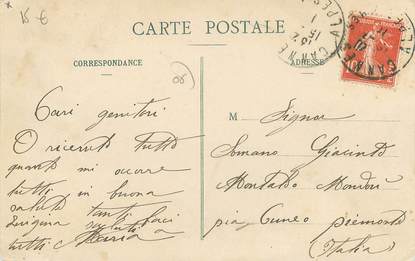 15 €
CARTE POSTALE
CORRESPONDANCE
ADRESSE
08
Cari genitori
O ricevuto tutto
quanto mi occorre
tutti in buona
salute tanti baci
saluti
tutti Maria
M Signor
Somano Giacinto
Montaldo Mondovi
pia Cuneo Piemonte
(Italia)
CANNES
ALPES
CANNES
ALPES